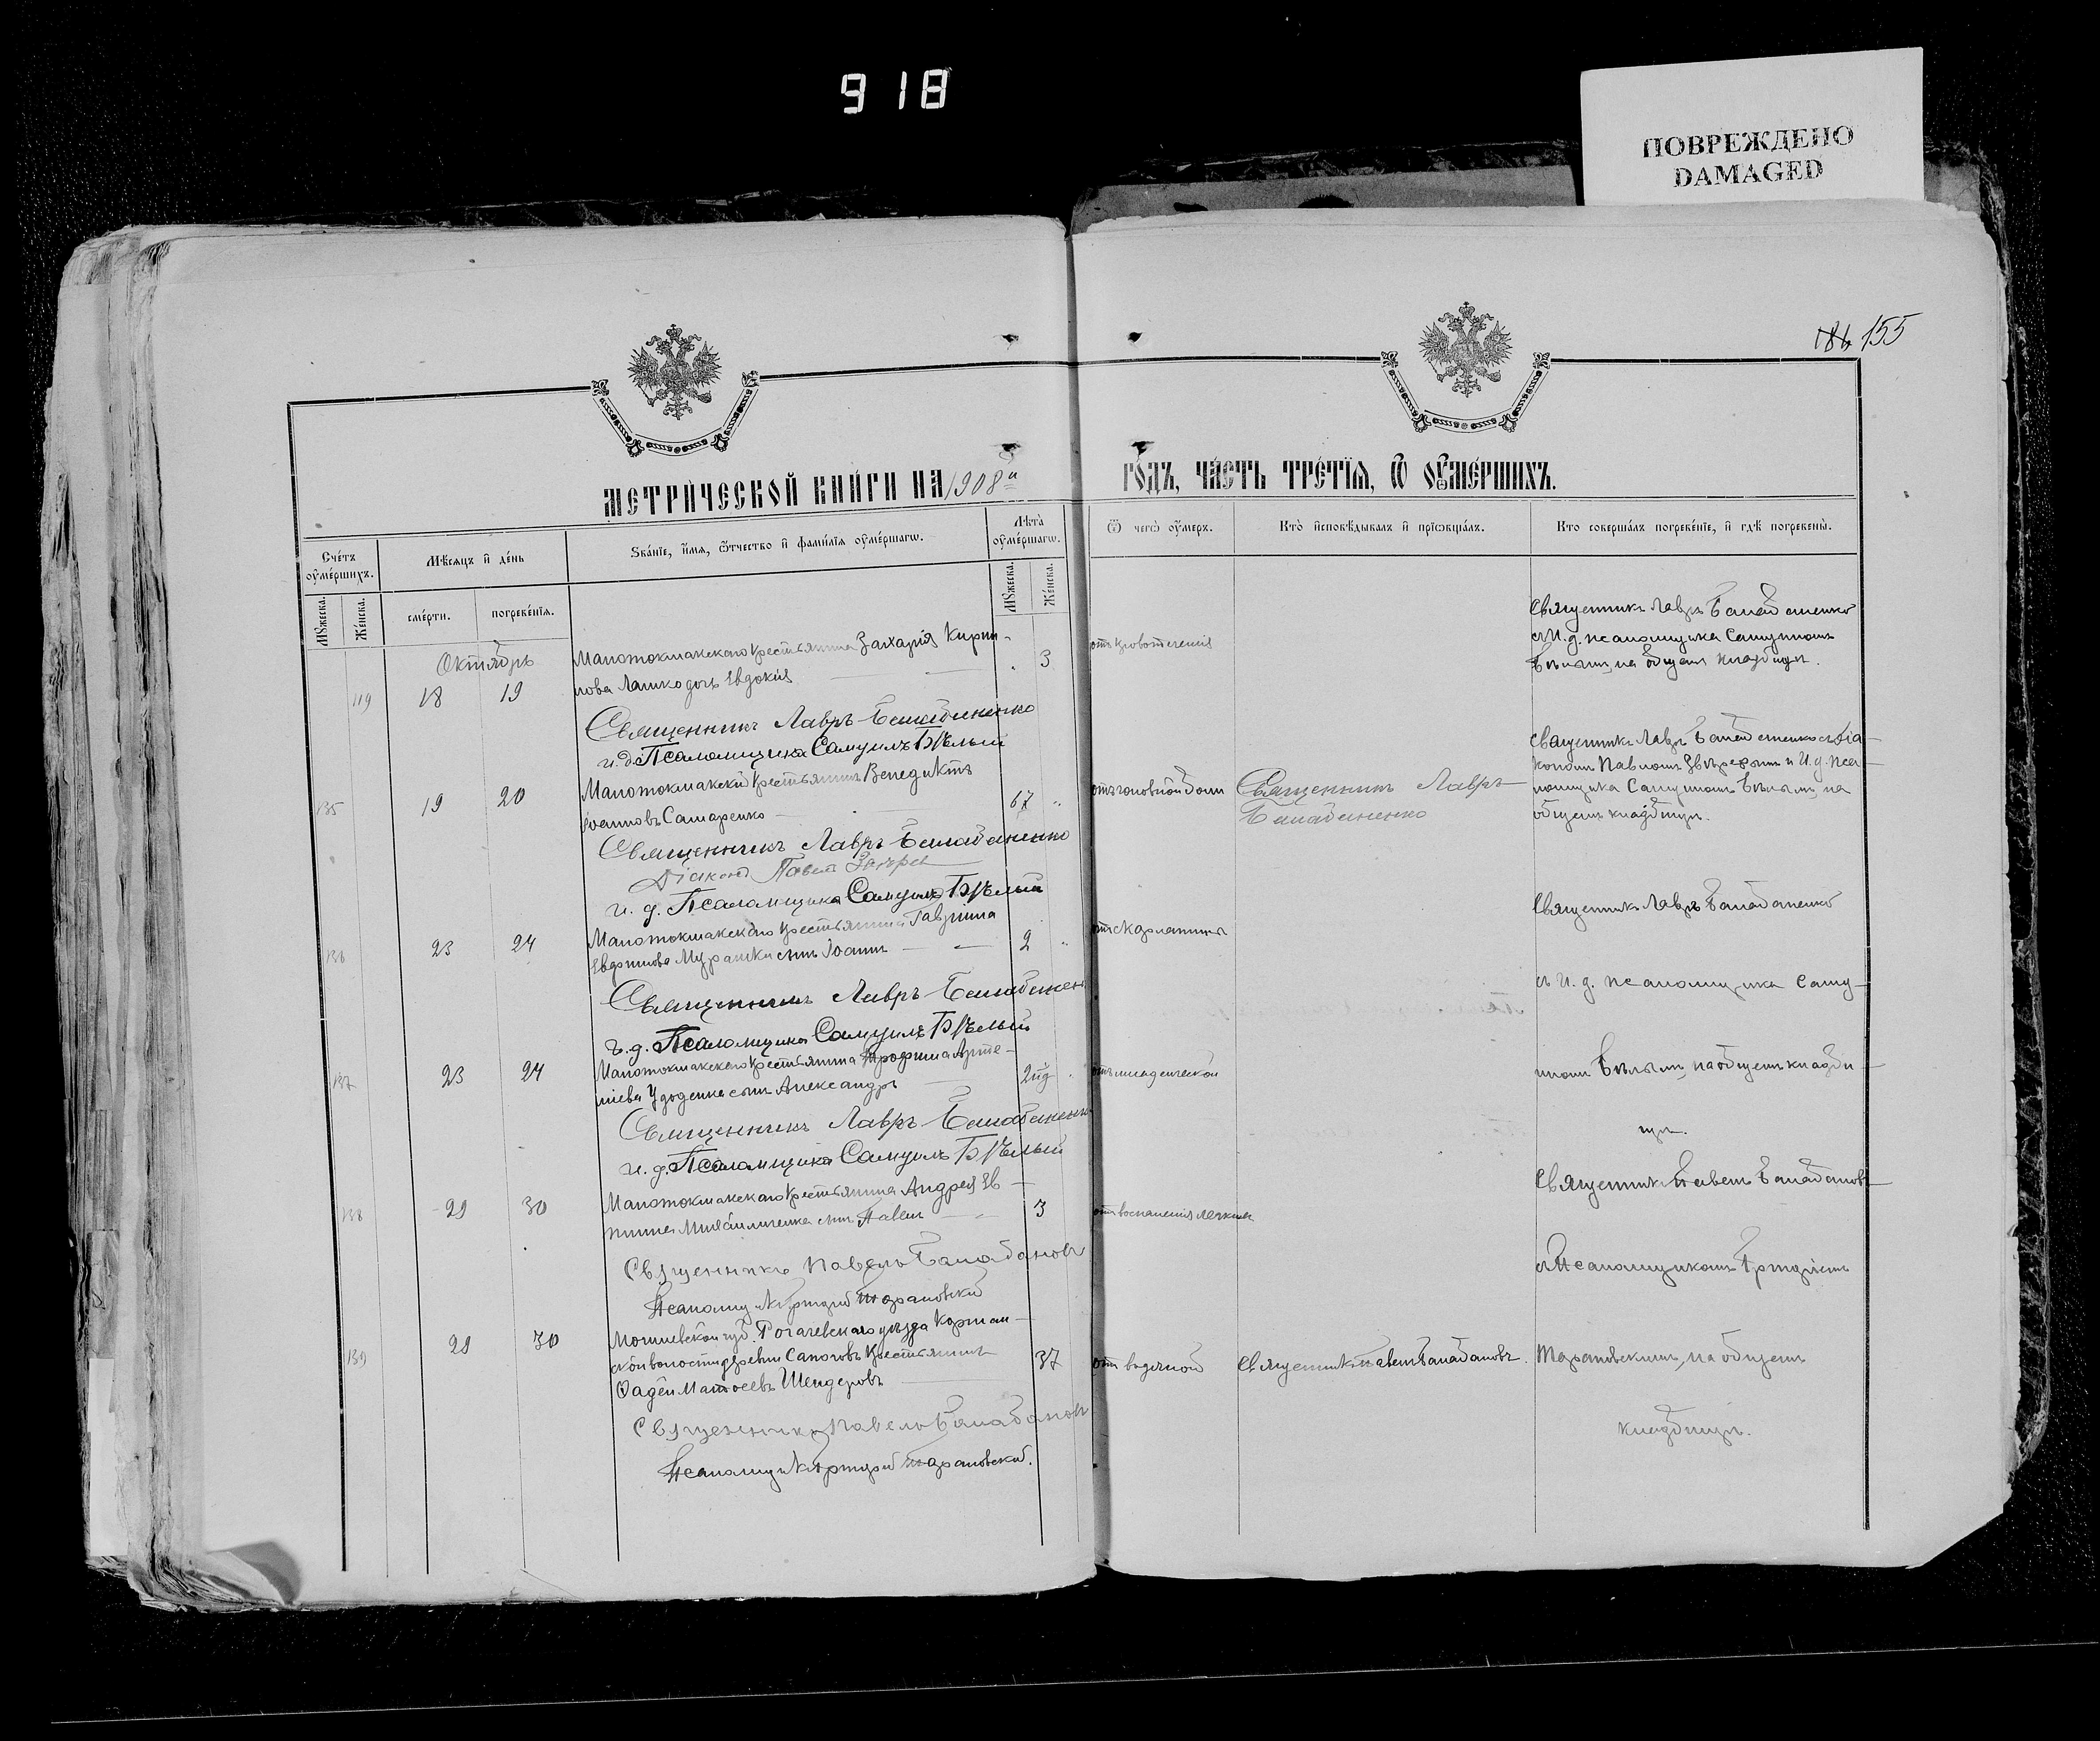 918
ПОВРЕЖДЕНО
DAMAGED
155
МЕТРИЧЕСКОЙ КНИГИ НА 1908й
ГОДЪ, ЧАСТЬ ТРЕТІЯ, Ѿ ОУМЕРШИХЪ.
Счетъ оумершихъ.
Мѣсяцъ и день
Званіе, имя, отчество и фамилія оумершагѡ.
Лѣта оумершагѡ.
Ѿ чегѡ оумеръ.
Кто исповѣдывалъ и пріѡбщалъ.
Кто совершалъ погребеніе, и гдѣ погребены.
Мꙋжеска.
Женска.
смерти.
погребенія.
Мꙋжеска.
Женска.
Октябрь
119
18
19
Малотокмакскаго крестьянина Захарія Кирил-
лова Лашко дочь Евдокія
3
отъ кровотеченія
Священникъ Лавръ Балабаненко
съ И. д. псаломщика Самуиломъ
Бѣлымъ, на общемъ кладбищѣ.
Священникъ Лавръ Балабаненко
и. д. Псаломщика Самуилъ Бѣлый
135
19
20
Малотокмакскій крестьянинъ Венедиктъ
Іоанновъ Самаренко
67
отъ головной боли
Священникъ Лавръ
Балабаненко
Священникъ Лавръ Балабаненко съ Діа-
кономъ Павломъ Звѣревымъ и И. д. пса-
ломщика Самуиломъ Бѣлымъ, на
общемъ кладбищѣ.
Священникъ Лавръ Балабаненко
Діаконъ Павелъ Звѣрев
и. д. Псаломщика Самуилъ Бѣлый
136
23
24
Малотокмакскаго крестьянина Гавріила
Евфимова Мурашки сынъ Іоаннъ
2
отъ скарлатины
Священникъ Лавръ Балабаненко
съ И. д. псаломщика Саму-
Священникъ Лавръ Балабаненк
и. д. Псаломщика Самуилъ Бѣлый
137
23
24
Малотокмакскаго крестьянина Трофима Арте-
міева Удоденка сынъ Александръ
2
отъ младенческой
иломъ Бѣлымъ, на общемъ кладби-
щѣ.
Священникъ Лавръ Балабаненк
и. д. Псаломщика Самуилъ Бѣлый
138
29
30
Малотокмакскаго крестьянина Андрея
Михайличенка сынъ Павелъ
3
отъ воспаленія легкихъ
Священникъ Павелъ Балабановъ
съ Псаломщикомъ
Священникъ Павелъ Балабановъ
Псаломщикъ Тарановскій
139
29
30
Могилевской губ. Рогачевскаго уѣзда
волости деревни Сапоговъ крестьянинъ
Фадей Матѳеевъ Шендеровъ
37
отъ водяной
Священникъ Павелъ Балабановъ.
Тарановскимъ, на общемъ
кладбищѣ.
Священникъ Павелъ Балабановъ
Псаломщикъ Тарановскій.